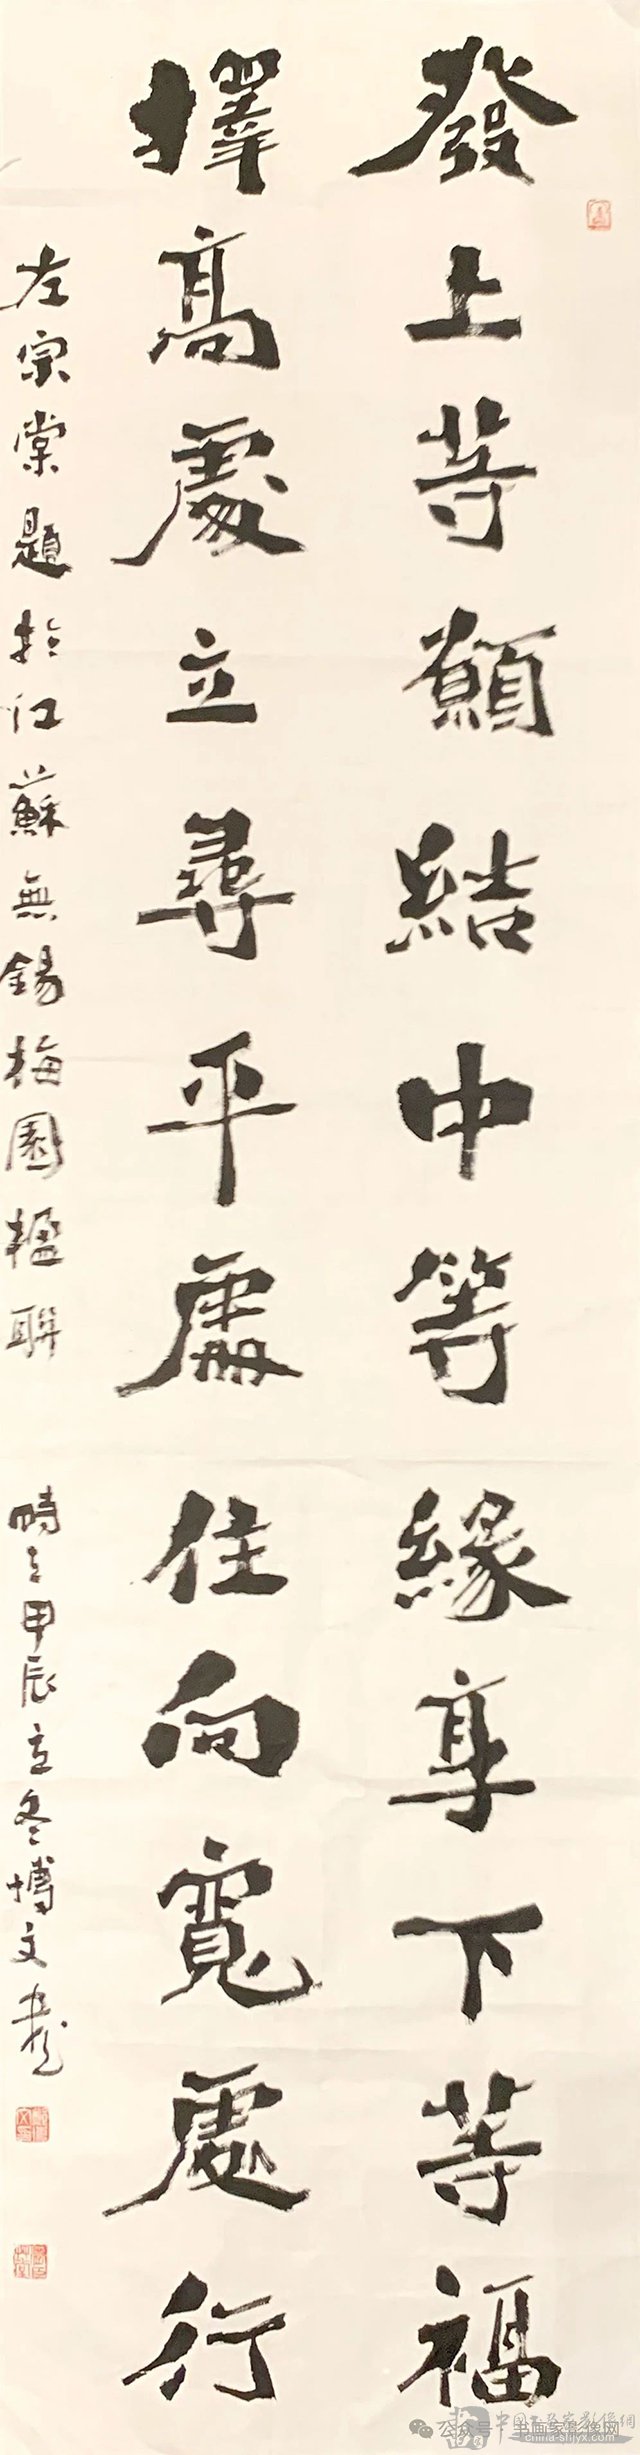 發上等願結中等緣享下等福
擇高處立尋平處住向寬處行
左宗棠題於江蘇無錫梅園楹聯
時在甲辰立冬博文書
公众号 · 书画家影像网
中国书画家影像網
china-shjyx.com